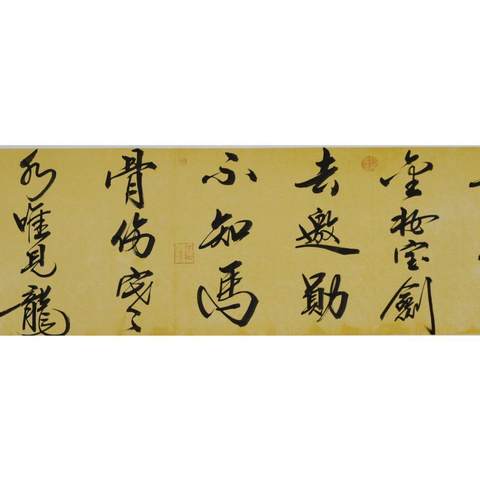 金宝劍
去邀勛
不知馬
骨傷寒
水唯見龍